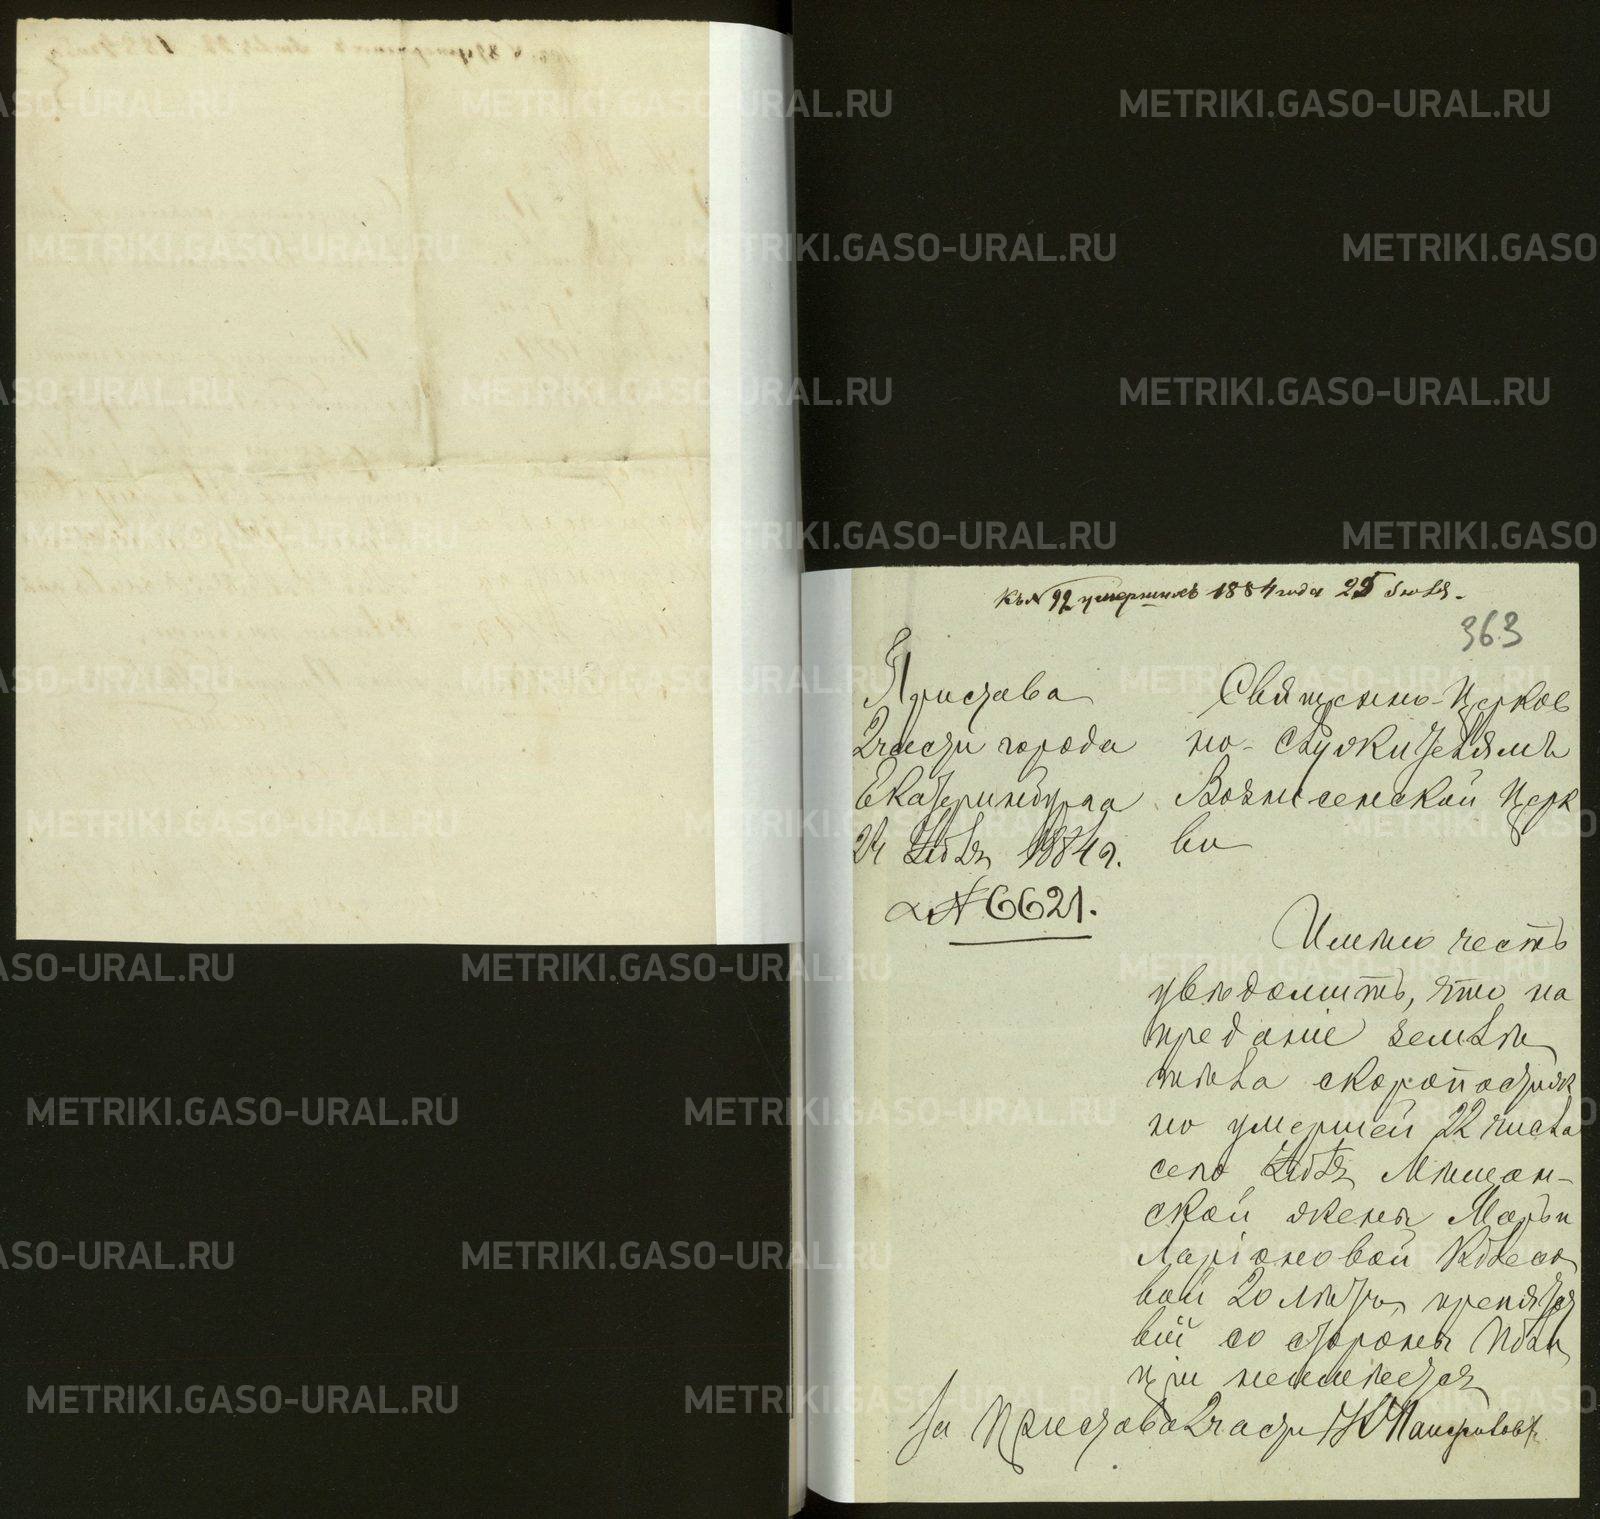 къ № 92 умершихъ 1884 года 25 Іюля.
363
Пристава
2 части города
Екатеринбурга
24 Іюля 1884 г.
№ 6621.
Священно-Церков
но-Служителямъ
Вознесенской Церк
ви
Имѣю честь
увѣдомить, что на
преданіе землѣ
тѣла скоропостиж
но умершей 22 числа
сего Іюля Мѣщан-
ской жены Марьи
Ларіоновой Колесо
вой 20 лѣтъ, препятст
вій со стороны Поли
ціи неимѣется
За Пристава 2 части
METRIKI.GASO-URAL.RU